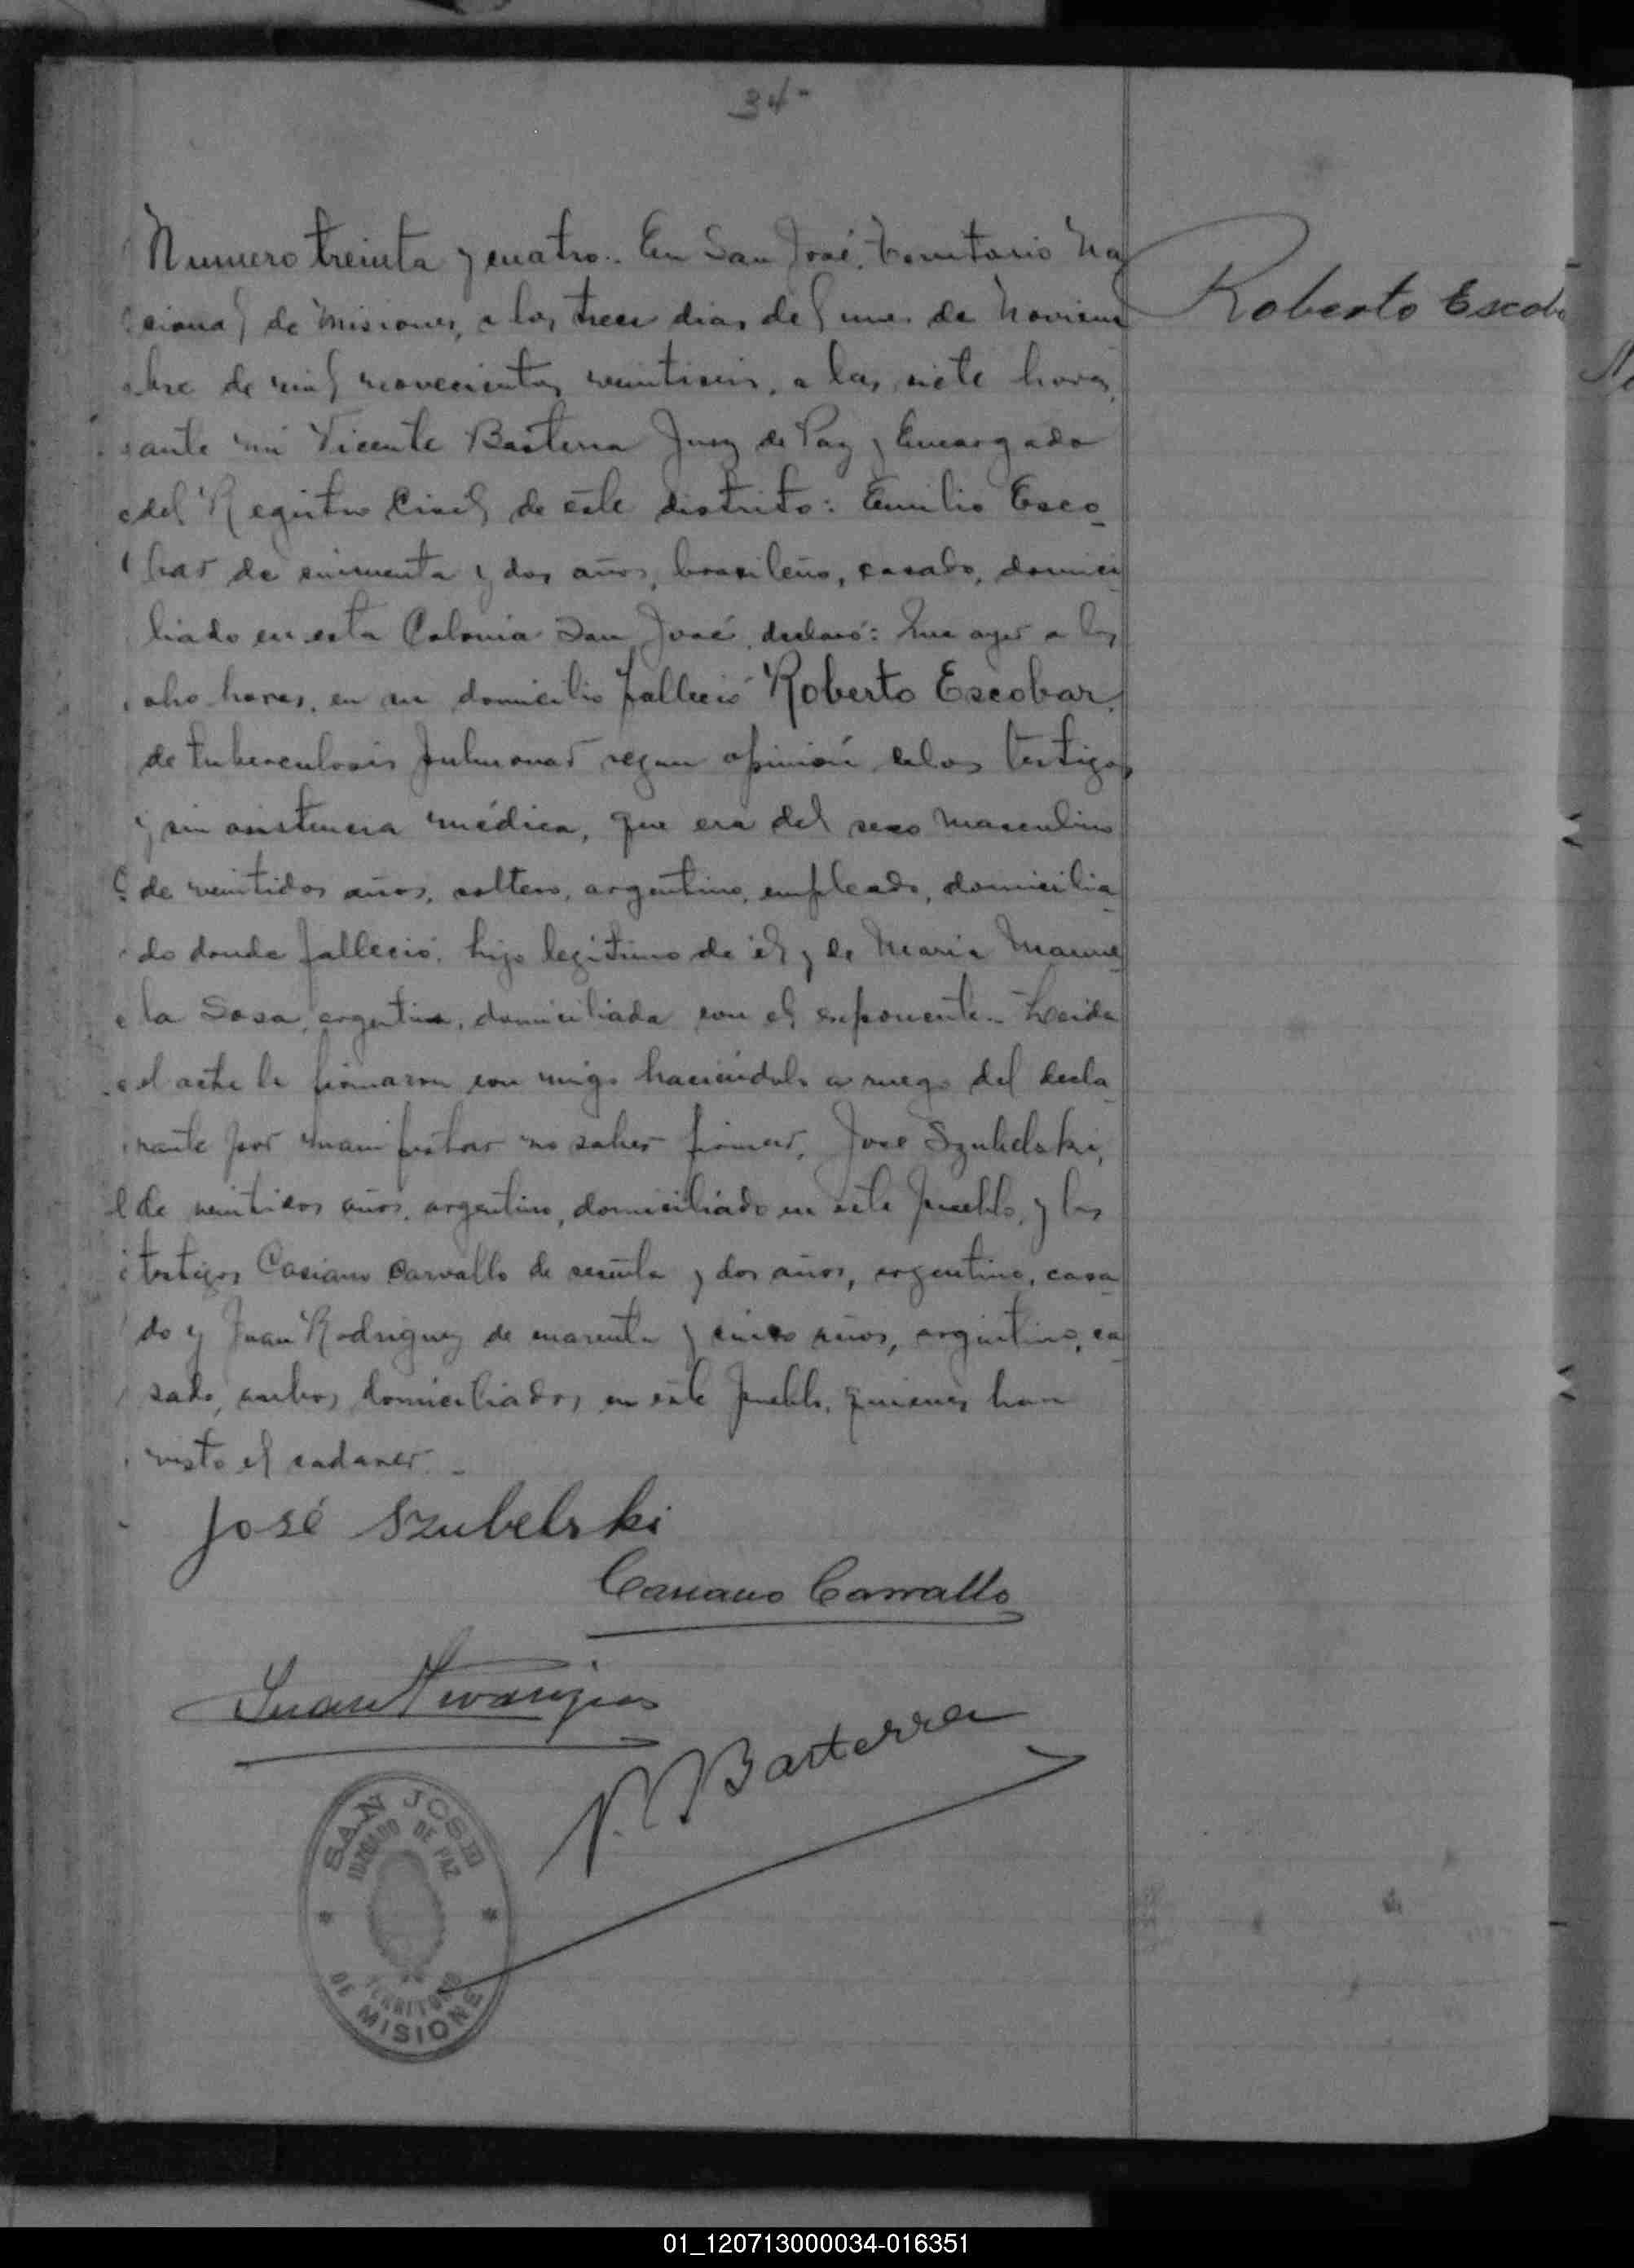 34
Numero treinta y cuatro.. En San José, Territorio Na
cional de Misiones, a los trece dias del mes de Noviem
bre de mil novecientos veintiseis, a las siete horas,
ante mi Vicente Basterra Juez de Paz y Encargado
del Registro Civil de este distrito: Emilio Esco
bar de cincuenta y dos años, brasileño, casado, domici
liado en esta Colonia San José, declaró: Que ayer a las
ocho horas, en su domicilio falleció Roberto Escobar,
de tuberculosis pulmonar segun opinión de los testigos
y sin asistencia médica, que era del sexo masculino
de veintidos años, soltero, argentino, empleado, domicilia
do donde falleció, hijo legítimo de él y de Maria Manue
la Sosa, argentina, domiciliada con el exponente.- Leida
el acta la firmaron con migo haciéndolo a ruego del decla
rante por manifestar no saber firmar, Jose Szubelski,
de veintidos años, argentino, domiciliado en este pueblo, y los
testigos Casiano Carvallo de sesenta y dos años, argentino, casa
do y Juan Rodriguez de cuarenta y cinco años, argentino, ca
sado, ambos domiciliados en este pueblo, quienes han
visto el cadaver. -
Roberto Escob
José Szubelski
Casiano Carvallo
Juan
V. Basterra
SAN JOSE
JUZGADO DE PAZ
TERRITORIO
DE MISIONES
01_120713000034-016351